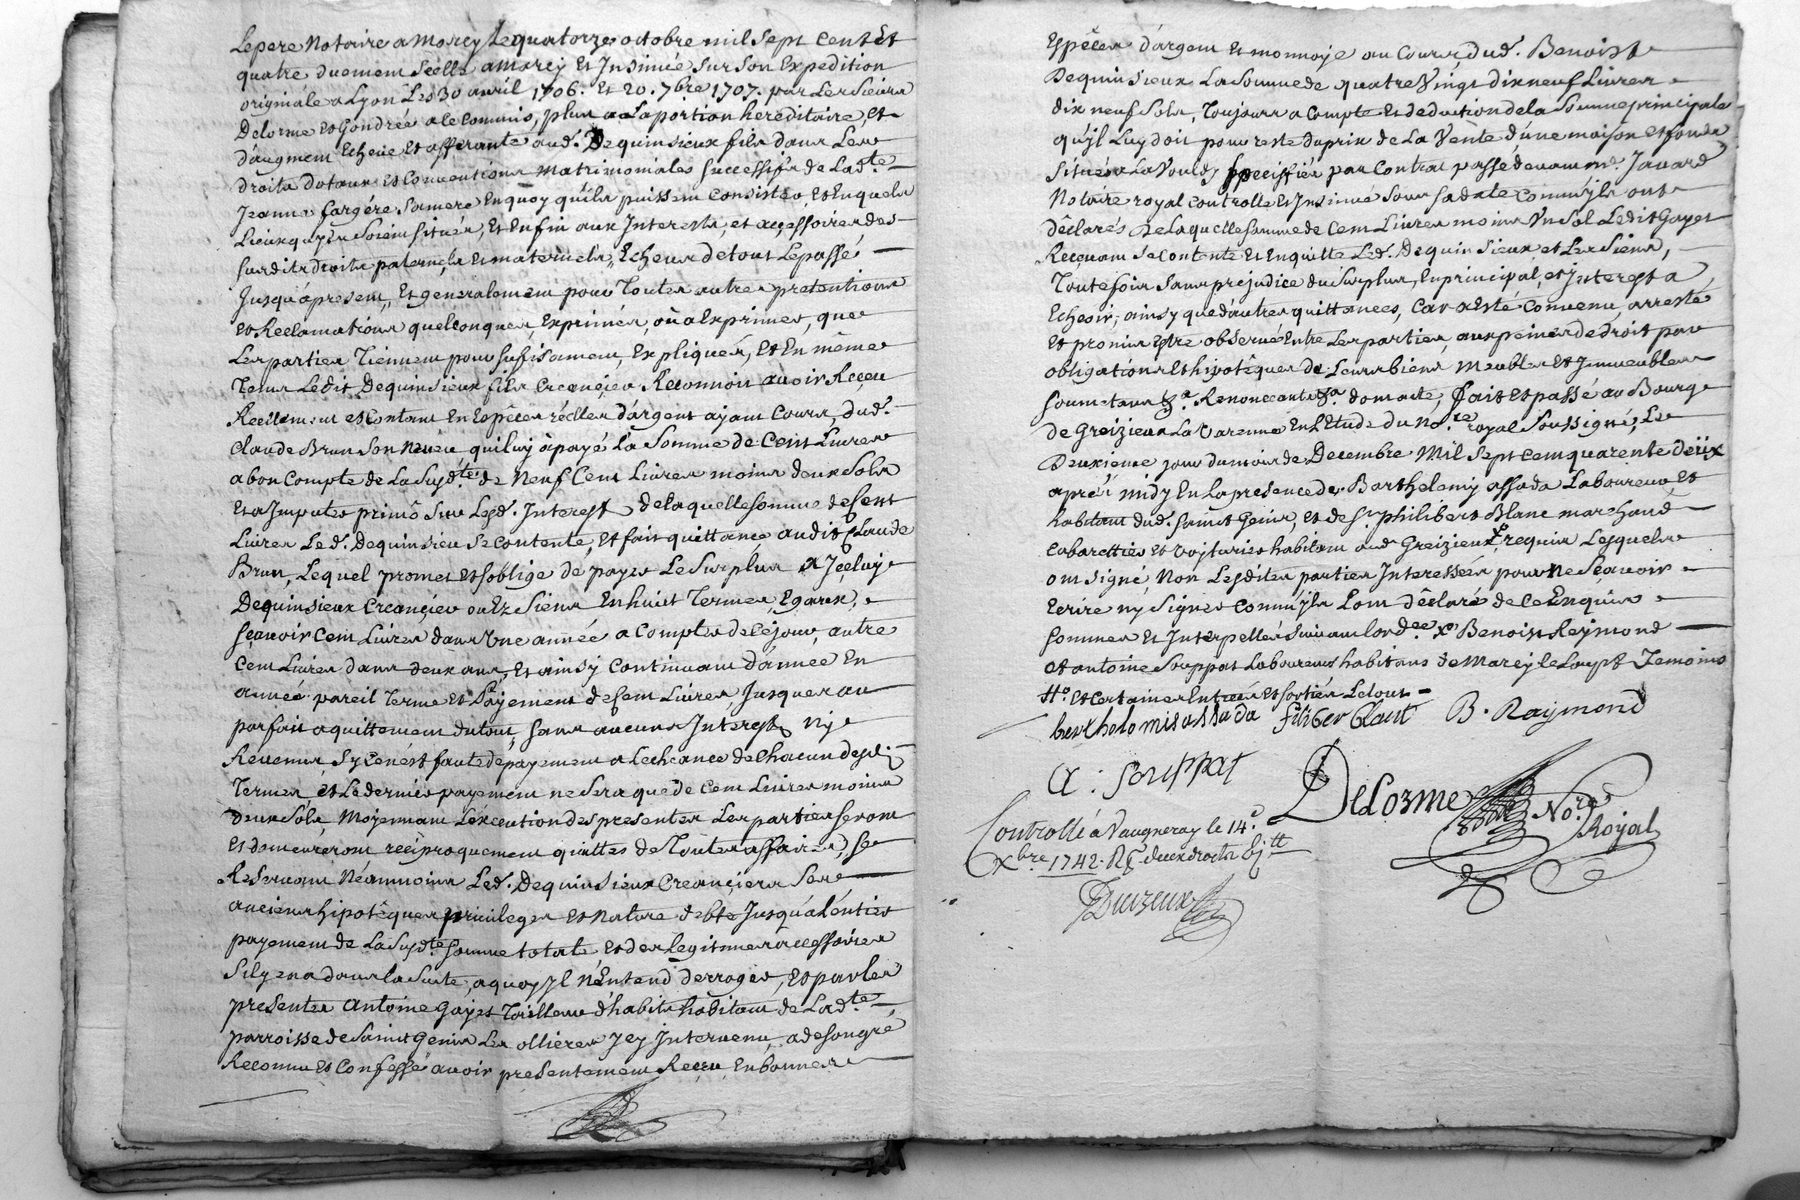 Lepere Notaire a Morey Le quatorze octobre mil sept cent Et
quatre duement scellé a Morey Et Insinué sur son Expedition
originale a Lyon Les 30 avril 1706. Et 20. 7bre 1707. par Les Sieurs
Delorme Et Gondrée a le Commis, plus a La portion hereditaire, Et
d'augment Echeüe Et afferante aud. Dequinsieux fils dans Les
droits dotaux Et Conventions Matrimoniales successifs de Lad.te
Jeanne fargére sa mere En quoy qu'ils puissent Consister, Et En quels
Lieux qu'ils soient situés, Et Enfin aux Interests, et accessoires des
susdits droits paternels Et maternels, Echeus de tout Le passé
Jusqu'apresent, Et generalement pour Toutes autres pretentions
Et Reclamations quelconques Exprimés, où a Exprimer, que
Les parties Tiennent pour sufisament Expliqués, Et En même
Tems Ledit Dequinsieux fils Creançier Reconnoit avoir Reçeu
Reellement et Contant En Espêces réelles d'argent ayant Cours, dud.
Claude Brun son Neveu qui luy à payé La Somme de Cent Livres
a bon Compte de La susd.te de Neuf Cent Livres moins deux Sols
Et a Imputer primò sur Lesd. Interest de laquelle somme de Cent
Livres Led. Dequinsieu se Contente, Et fait quittance audit Claude
Brun, Lequel promet Et s'oblige de payer Le Surplus a Jçeluy
Dequinsieux Creançier ou Ez Siens En huit Termes Egaux,
sçavoir Cent Livres dans Une année a Compter de Cejour, autre
Cent Livres dans deux ans, Et ainsy Continuant d'année En
année pareil Terme et Payement de Cent Livres Jusques au
parfait aquittement du tout, sans aucuns Interest Ny
Revenus sy Cen'est faute de payement a Lecheance de Chacun desd.
Termes, Et Le dernier payement ne Sera que de Cent Livres moins
deux Sols, Moÿennant L'éxecution des presentes Les parties seront
Et demeureront reciproquement quittes de Toutes affaires, se
Reservant Néanmoins Led. Dequinsieux Creançier Ses
anciens hipotêques privileges Et Nature debte Jusqu'a l'Entier
payement de La susd.te somme totale Et des Legitimes accessoires
S'il y en a dans la suite, a quoy Jl N'Entend derroger, Et par les
presentes Antoine Gayet Tailleur d'habits habitant de Lad.te
parroisse de Saint Genis Les ollieres Jcy Intervenu, a de son gré
Reconnu Et Confessé avoir presentement Reçeu En bonnes
Espêces d'argent Et monnoye au Cours, dud. Benoist
Dequinsieux La Somme de quatre Vingt dix neuf Livres
dix neuf Sols, Toujours a Compte Et deduction de la Somme principale
qu'jl Luy doit pour reste du prix de La Vente d'une maison et fonds
Situés a La Vouldy specifiés par Contrat passé devant me Javard
Notaire royal Controllé Et Insinué sous sa date Comm'jls ont
déclarés De Laquelle somme de Cent Livres moins Un Sol Ledit Gayet
Recevant se Contente Et En quitte Led. Dequinsieux et Les Siens,
Toutefois sans prejudice du Surplus, En principal, et Interest a
Echeoir, ainsy que d'autres quittances, Car a Esté Convenu, arresté
Et promis Estre observé Entre Les parties, aux peines de droit par
obligations Et hipotêques de Leurs biens Meubles Et Immeubles
soumetans &a. Renonceants &a. dont acte, fait Et passé au Bourg
de Greizieux La Varenne En L'Etude du No.re royal Soussigné, Le
Deuxieme jour du mois de Decembre Mil Sept Cent quarente Deüx
aprés midy En La presence de Barthelemy assada Laboureur, Et
habitant dud. Saint Genis, Et de Sr. philibert Blanc marchand
Cabarettier et Voiturier habitant aud. Greizieux, requis Lesquels
ont Signé, Non Lesdites parties Interessées pour Ne sçavoir
Ecrire ny Signer Comm'jls L'ont déclaré de Ce Enquis
sommés Et Interpellés suivant lord.ce Benoist Reymond
et antoine Souppat Laboureurs habitans de Marcy le Loupt Temoins
Et Certaines Entrées Et sorties Le tout
berthelomis assada filiber blant B. Raymond
A : souppat
Delorme No.re Royal
Controllé à Vaugneray le 14e.
Xbre. 1742. R
Duizeux